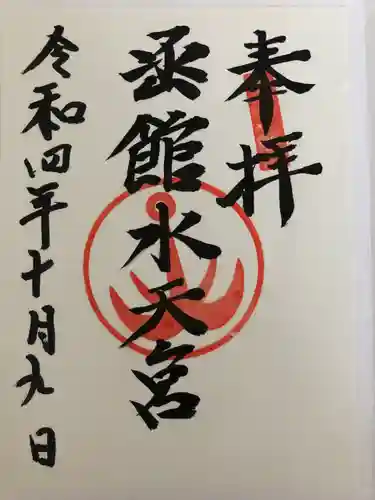 奉拝
函館水天宮
令和四年十月九日